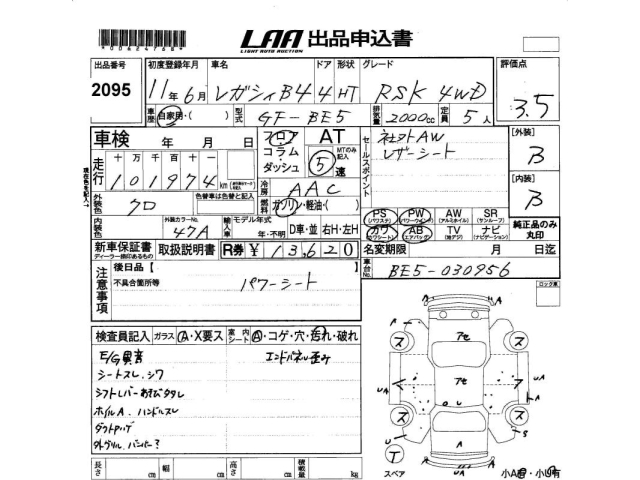 LAA 出品申込書
LIGHT AUTO AUCTION
出品番号 初度登録年月 車名 ドア 形状 グレード 評価点
2095 11年6月 レガシィB4 4 HT RSK 4WD 3.5
車歴 自家用・( ) 型式 GF-BE5 排気量 2000cc 定員 5人
車検 年 月 日
フロア コラム・ダッシュ AT 5速 MTのみ記入
セールスポイント 社外AW
レザーシート
[外装] B
走行 十万千百十一 101974km
冷房 AAC
[内装] B
外装色 クロ 色替車は色替と記入 燃料 ガソリン・軽油・( )
PS (パワステ) PW (パワーウインド) AW (アルミホイル) SR (サンルーフ)
カワ (カワシート) AB (エアバッグ) TV (地デジ) ナビ (ナビゲーション)
純正品のみ丸印
内装色 外装カラーNo. 47A 輸入車 モデル年式 年・不明 D車・並 右H・左H
新車保証書 ディーラー捺印あるもの 取扱説明書 R券 ¥13,620
名変期限 月 日迄
車台No. BE5-030956
注意事項 後日品【 】
不具合箇所等 パワーシート
ロック車
検査員記入 ガラス A・X要ス 室内シート A・コゲ・穴・汚れ・破れ
E/G異音 エンドパネル歪み
シートスレ、シワ
シフトレバーあそびタタレ
ホイルA、ハンドルスレ
外グリル、バンパー?
長さ cm 幅 cm 高さ cm 積載量 kg
スペア